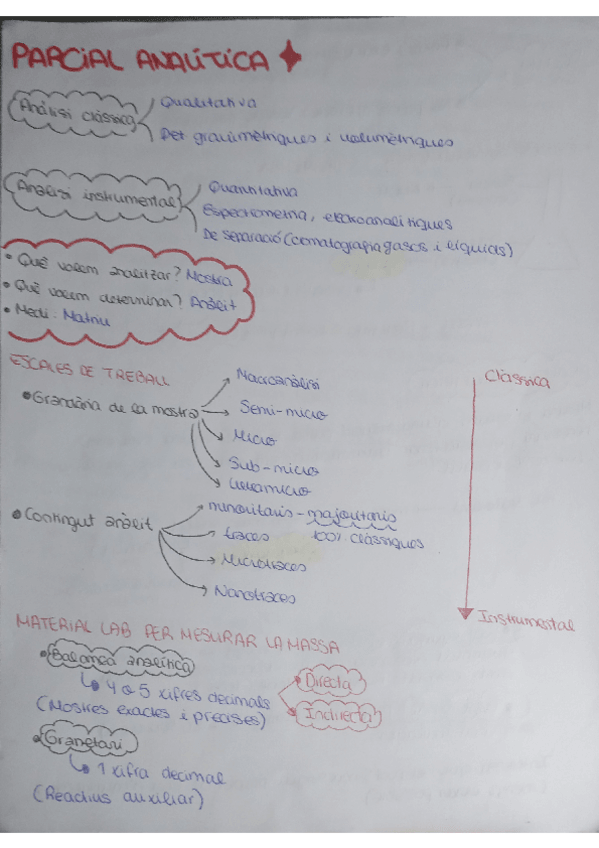 PARCIAL ANALÍTICA
Anàlisi clàssica
Qualitativa
Det gravimètriques i volumètriques
Anàlisi instrumental
Quantitativa
Espectrometria, electroanalítiques
De separació (cromatografia gasos i líquids)
• Què volem analitzar? Mostra
• Què volem determinar? Anàlit
• Medi: Matriu
ESCALES DE TREBALL
• Grandària de la mostra
Macroanàlisi
Semi-micro
Micro
Sub-micro
Ultramicro
• Contingut anàlit
minoritaris - majoritaris
traces 100% clàssiques
Microtraces
Nanotraces
Clàssica
Instrumental
MATERIAL LAB PER MESURAR LA MASSA
• Balança analítica
↳ 4 o 5 xifres decimals
(Mostres exactes i precises)
Directa
Indirecta
• Granetari
↳ 1 xifra decimal
(Reactius auxiliar)